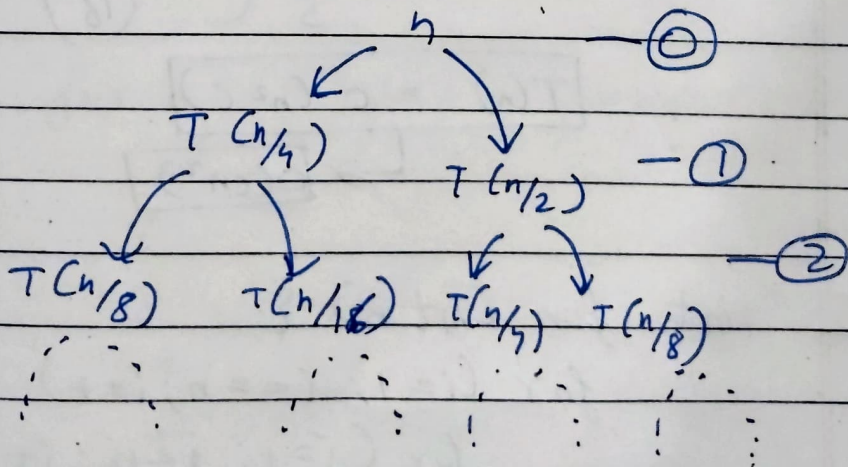 n — 0
T (n/4)
T (n/2) — 1
— 2
T(n/8) T(n/16) T(n/4) T(n/8)